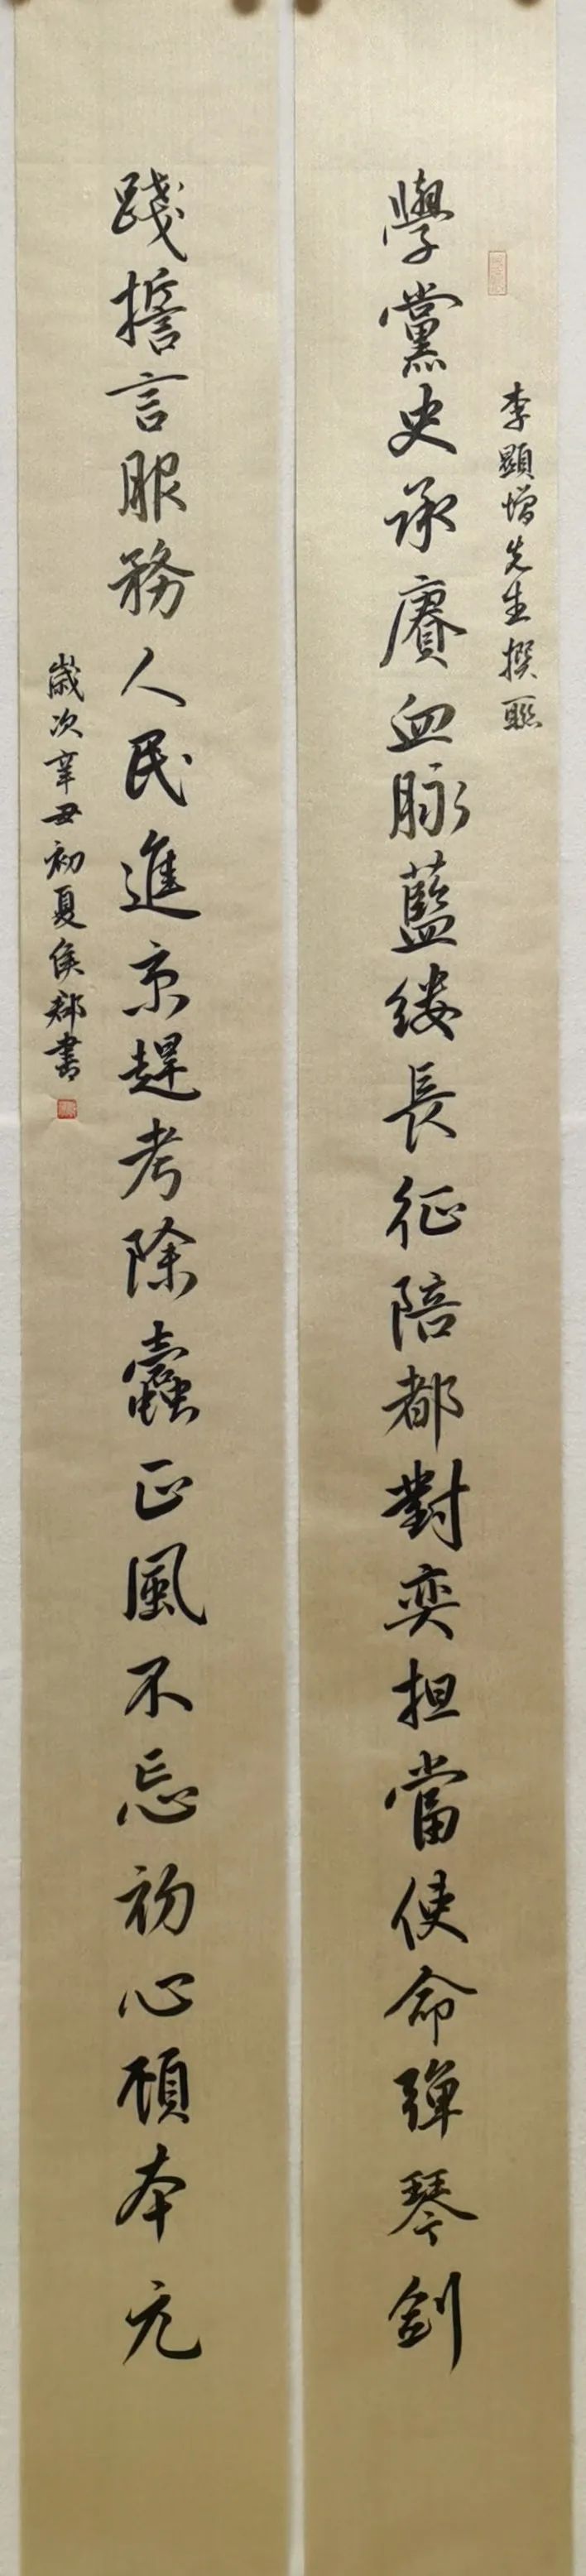 李顯增先生撰聯
學黨史承賡血脉藍缕長征陪都對奕担當使命彈琴劍
踐誓言服務人民進京趕考除蠹正風不忘初心顧本元
歲次辛丑初夏侯郝書